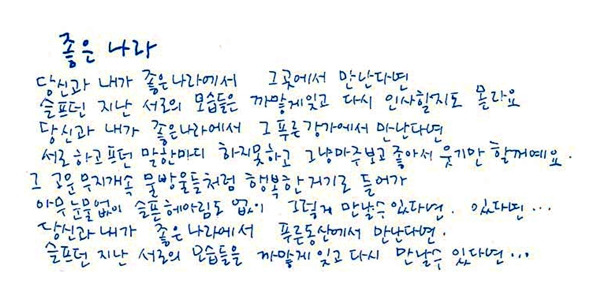 좋은 나라
당신과 내가 좋은나라에서 그곳에서 만난다면
슬프던 지난 서로의 모습들은 까맣게잊고 다시 인사할지도 몰라요
당신과 내가 좋은나라에서 그푸른강가에서 만난다면
서로하고프던 말한마디 하지못하고 그냥마주보고좋아서 웃기만 할거예요.
그 고운무지개속 물방울들처럼 행복한거기로 들어가
아무눈물없이 슬픈헤아림도 없이 그렇게 만날수있다면. 있다면...
당신과내가 좋은나라에서 푸른동산에서 만난다면.
슬프던 지난 서로의 모습들을 까맣게잊고다시 만날수 있다면...